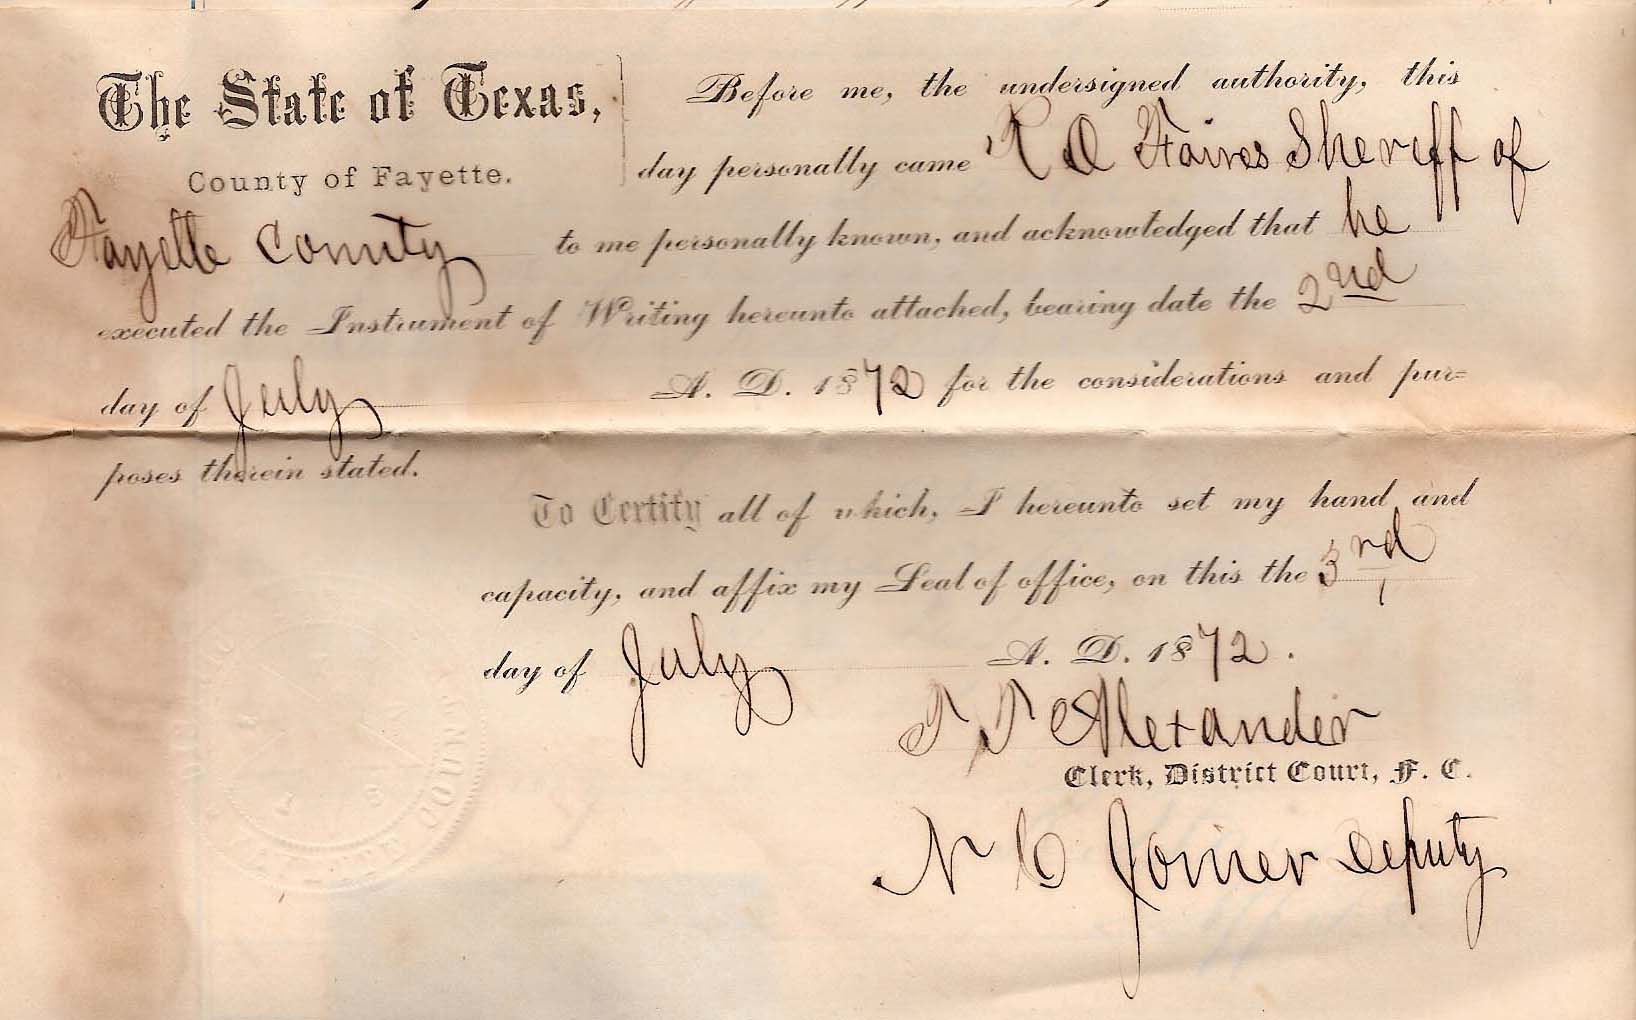 The State of Texas,
County of Fayette.
Before me, the undersigned authority, this
day personally came R O Faires Sheriff of
Fayette County to me personally known, and acknowledged that he
executed the Instrument of Writing hereunto attached, bearing date the 2nd
day of July A. D. 1872 for the considerations and pur=
poses therein stated.
To Certify all of which, I hereunto set my hand and
capacity, and affix my Seal of office, on this the 3rd
day of July A. D. 1872.
Alexander
Clerk, District Court, F. C.
N C Joiner Deputy